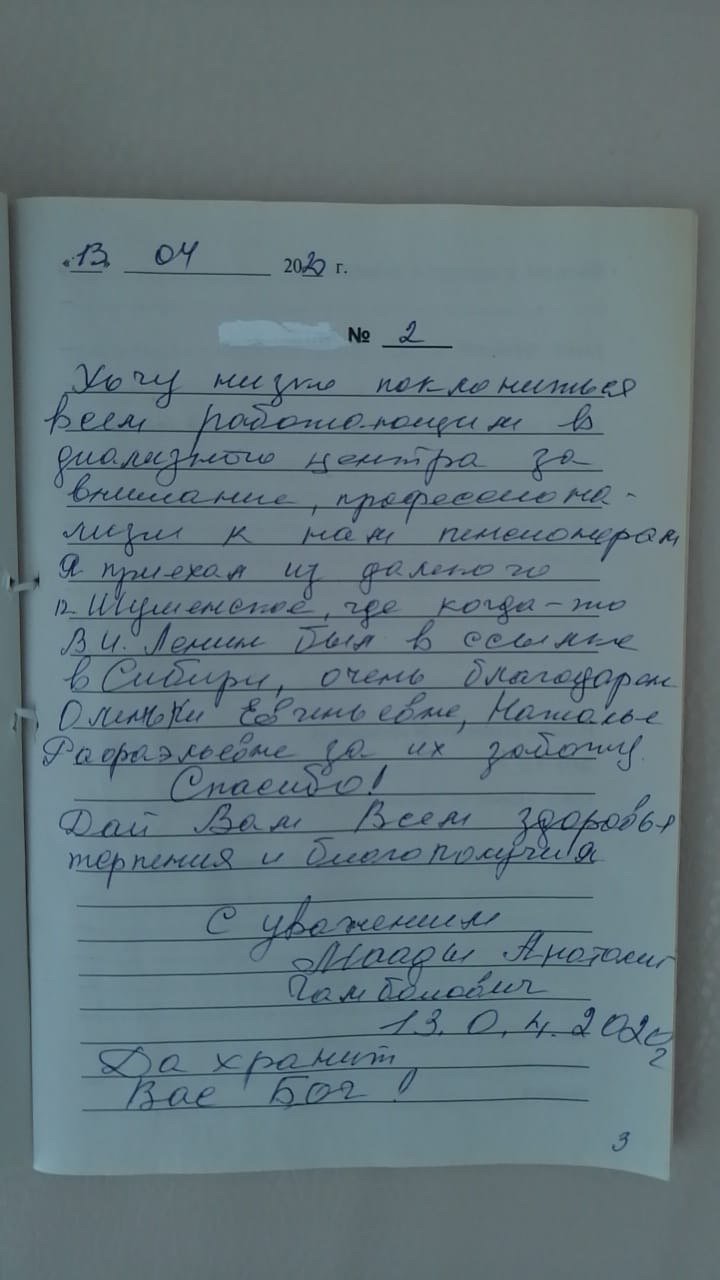 «13» 04 2020 г.
№ 2
Хочу низко поклониться
всем работающим в
диализного центра за
внимание, профессиона-
лизм к нам пенсионерам
Я приехал из далекого
п. Шушенское, где когда-то
В.И. Ленин был в ссылке
в Сибири, очень благодарен
Оленьки Евгеньевне, Наталье
Рафаэльевне за их заботу.
Спасибо!
Дай Вам Всем здоровья
терпения и благополучия
С уважением
Маады Анатолий
13.0.4.2020г
Да хранит
Вас Бог!
3